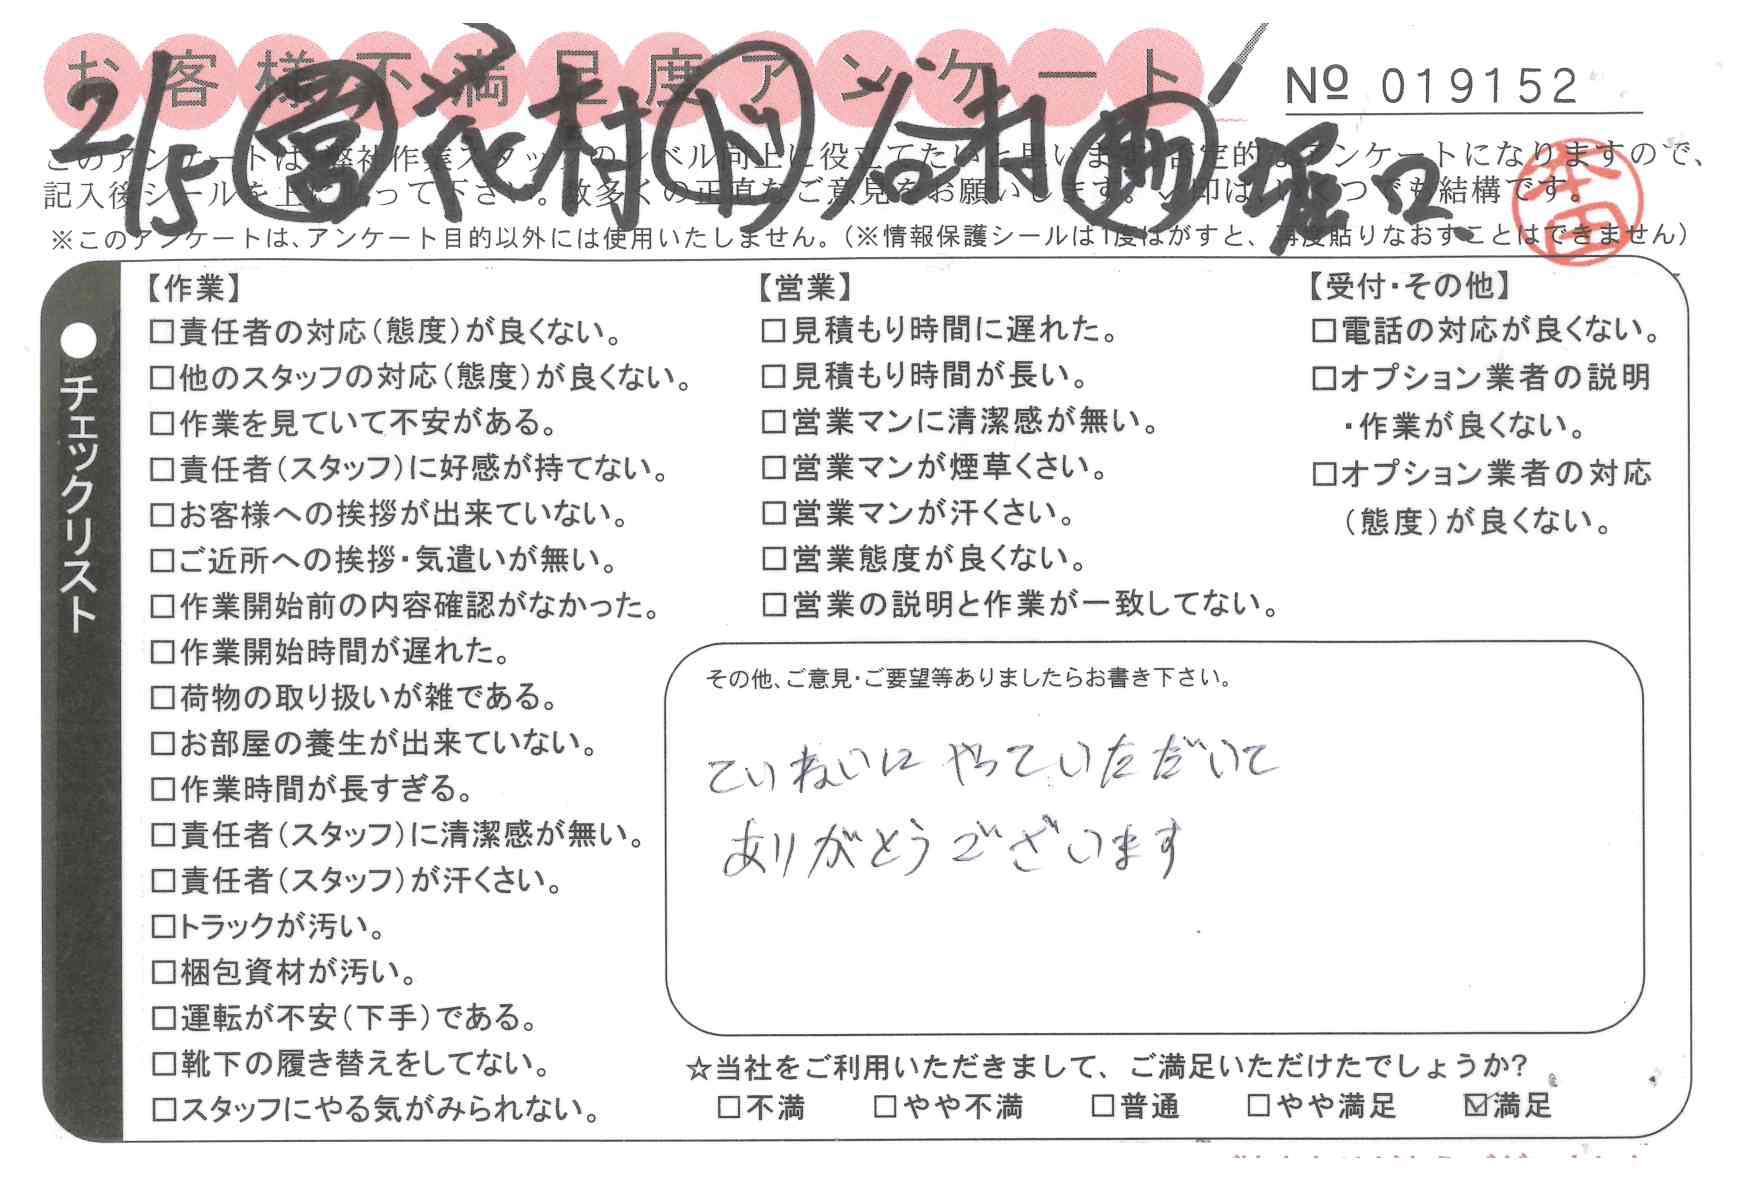 お客様不満足度アンケート
№ 019152
2/5 営 花村 ド 谷村 助 堀口
このアンケートは、弊社作業スタッフのレベル向上に役立てたいと思います。否定的なアンケートになりますので、
記入後シールを上に貼って下さい。数多くの正直なご意見をお願いします。✓印は、いくつでも結構です。
※このアンケートは、アンケート目的以外には使用いたしません。(※情報保護シールは1度はがすと、再度貼りなおすことはできません)
本田
●チェックリスト
【作業】
□責任者の対応(態度)が良くない。
□他のスタッフの対応(態度)が良くない。
□作業を見ていて不安がある。
□責任者(スタッフ)に好感が持てない。
□お客様への挨拶が出来ていない。
□ご近所への挨拶・気遣いが無い。
□作業開始前の内容確認がなかった。
□作業開始時間が遅れた。
□荷物の取り扱いが雑である。
□お部屋の養生が出来ていない。
□作業時間が長すぎる。
□責任者(スタッフ)に清潔感が無い。
□責任者(スタッフ)が汗くさい。
□トラックが汚い。
□梱包資材が汚い。
□運転が不安(下手)である。
□靴下の履き替えをしてない。
□スタッフにやる気がみられない。
【営業】
□見積もり時間に遅れた。
□見積もり時間が長い。
□営業マンに清潔感が無い。
□営業マンが煙草くさい。
□営業マンが汗くさい。
□営業態度が良くない。
□営業の説明と作業が一致してない。
【受付・その他】
□電話の対応が良くない。
□オプション業者の説明
・作業が良くない。
□オプション業者の対応
(態度)が良くない。
その他、ご意見・ご要望等ありましたらお書き下さい。
ていねいにやっていただいて
ありがとうございます
☆当社をご利用いただきまして、ご満足いただけたでしょうか?
□不満 □やや不満 □普通 □やや満足 ☑満足